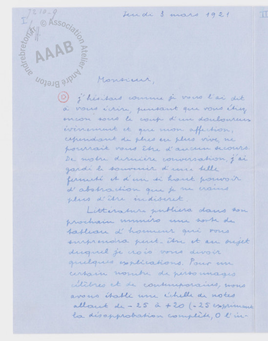 Jeudi 8 mars 1921
Monsieur,
j'hésitais comme je vous l'ai dit
à vous écrire, pensant que vous étiez
encore sous le coup d'un douloureux
événement et que mon affection,
cependant de plus en plus vive, ne
pourrait vous être d'aucun secours.
De notre dernière conversation, j'ai
gardé le souvenir d'une telle
fermeté et d'un si haut pouvoir
d'abstraction que je ne crains
plus d'être indiscret.
Littérature publiera dans son
prochain numéro une sorte de
tableau d'honneur qui vous
surprendra peut-être et au sujet
duquel je crois vous devoir
quelques explications. Pour un
certain nombre de personnages
célèbres et de contemporains, nous
avons établi une échelle de notes
allant de -25 à +20 (-25 exprimant
la désapprobation complète, 0 l'in-
andrebreton.fr © Association Atelier André Breton
AAAB